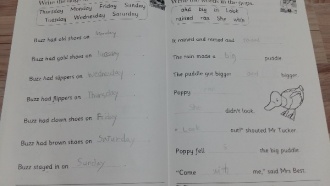 Thursday Monday Friday Sunday
Tuesday Wednesday Saturday
Buzz had ski shoes on Monday.
Buzz had shoes on Tuesday.
Buzz had slippers on Wednesday.
Buzz had flippers on Thursday.
Buzz had clown shoes on Friday.
Buzz had brown shoes on Saturday.
Buzz stayed in on Sunday.
and big in Look
raised ran she with
It rained and rained and
The rain made a big puddle.
The puddle got bigger bigger.
Poppy
she didn't look.
"Look out!" shouted Mr Tucker.
Poppy fell the big puddle.
"Come with me," said Mrs Best.